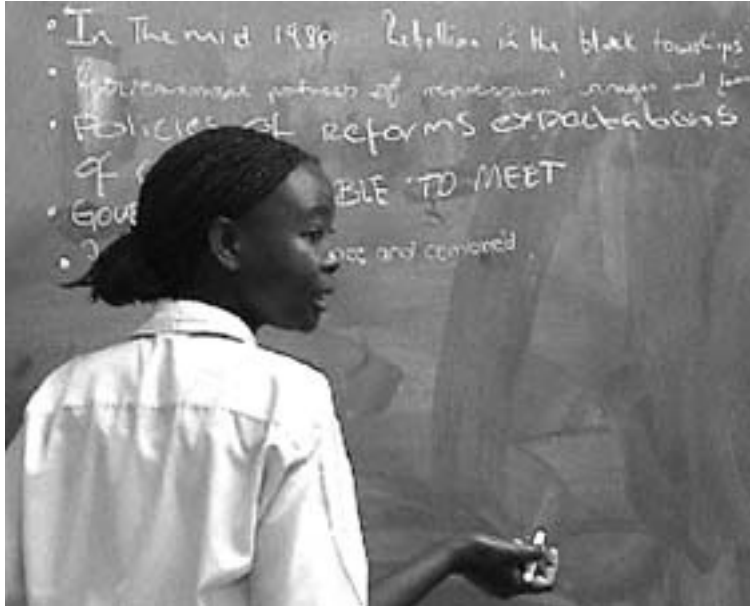 • In The mid 1980. Rebellion in the black townships
• Government policies of repression' anger and
• Policies of REFORMS expectations
of
• GOVE BLE TO MEET
• and censored.